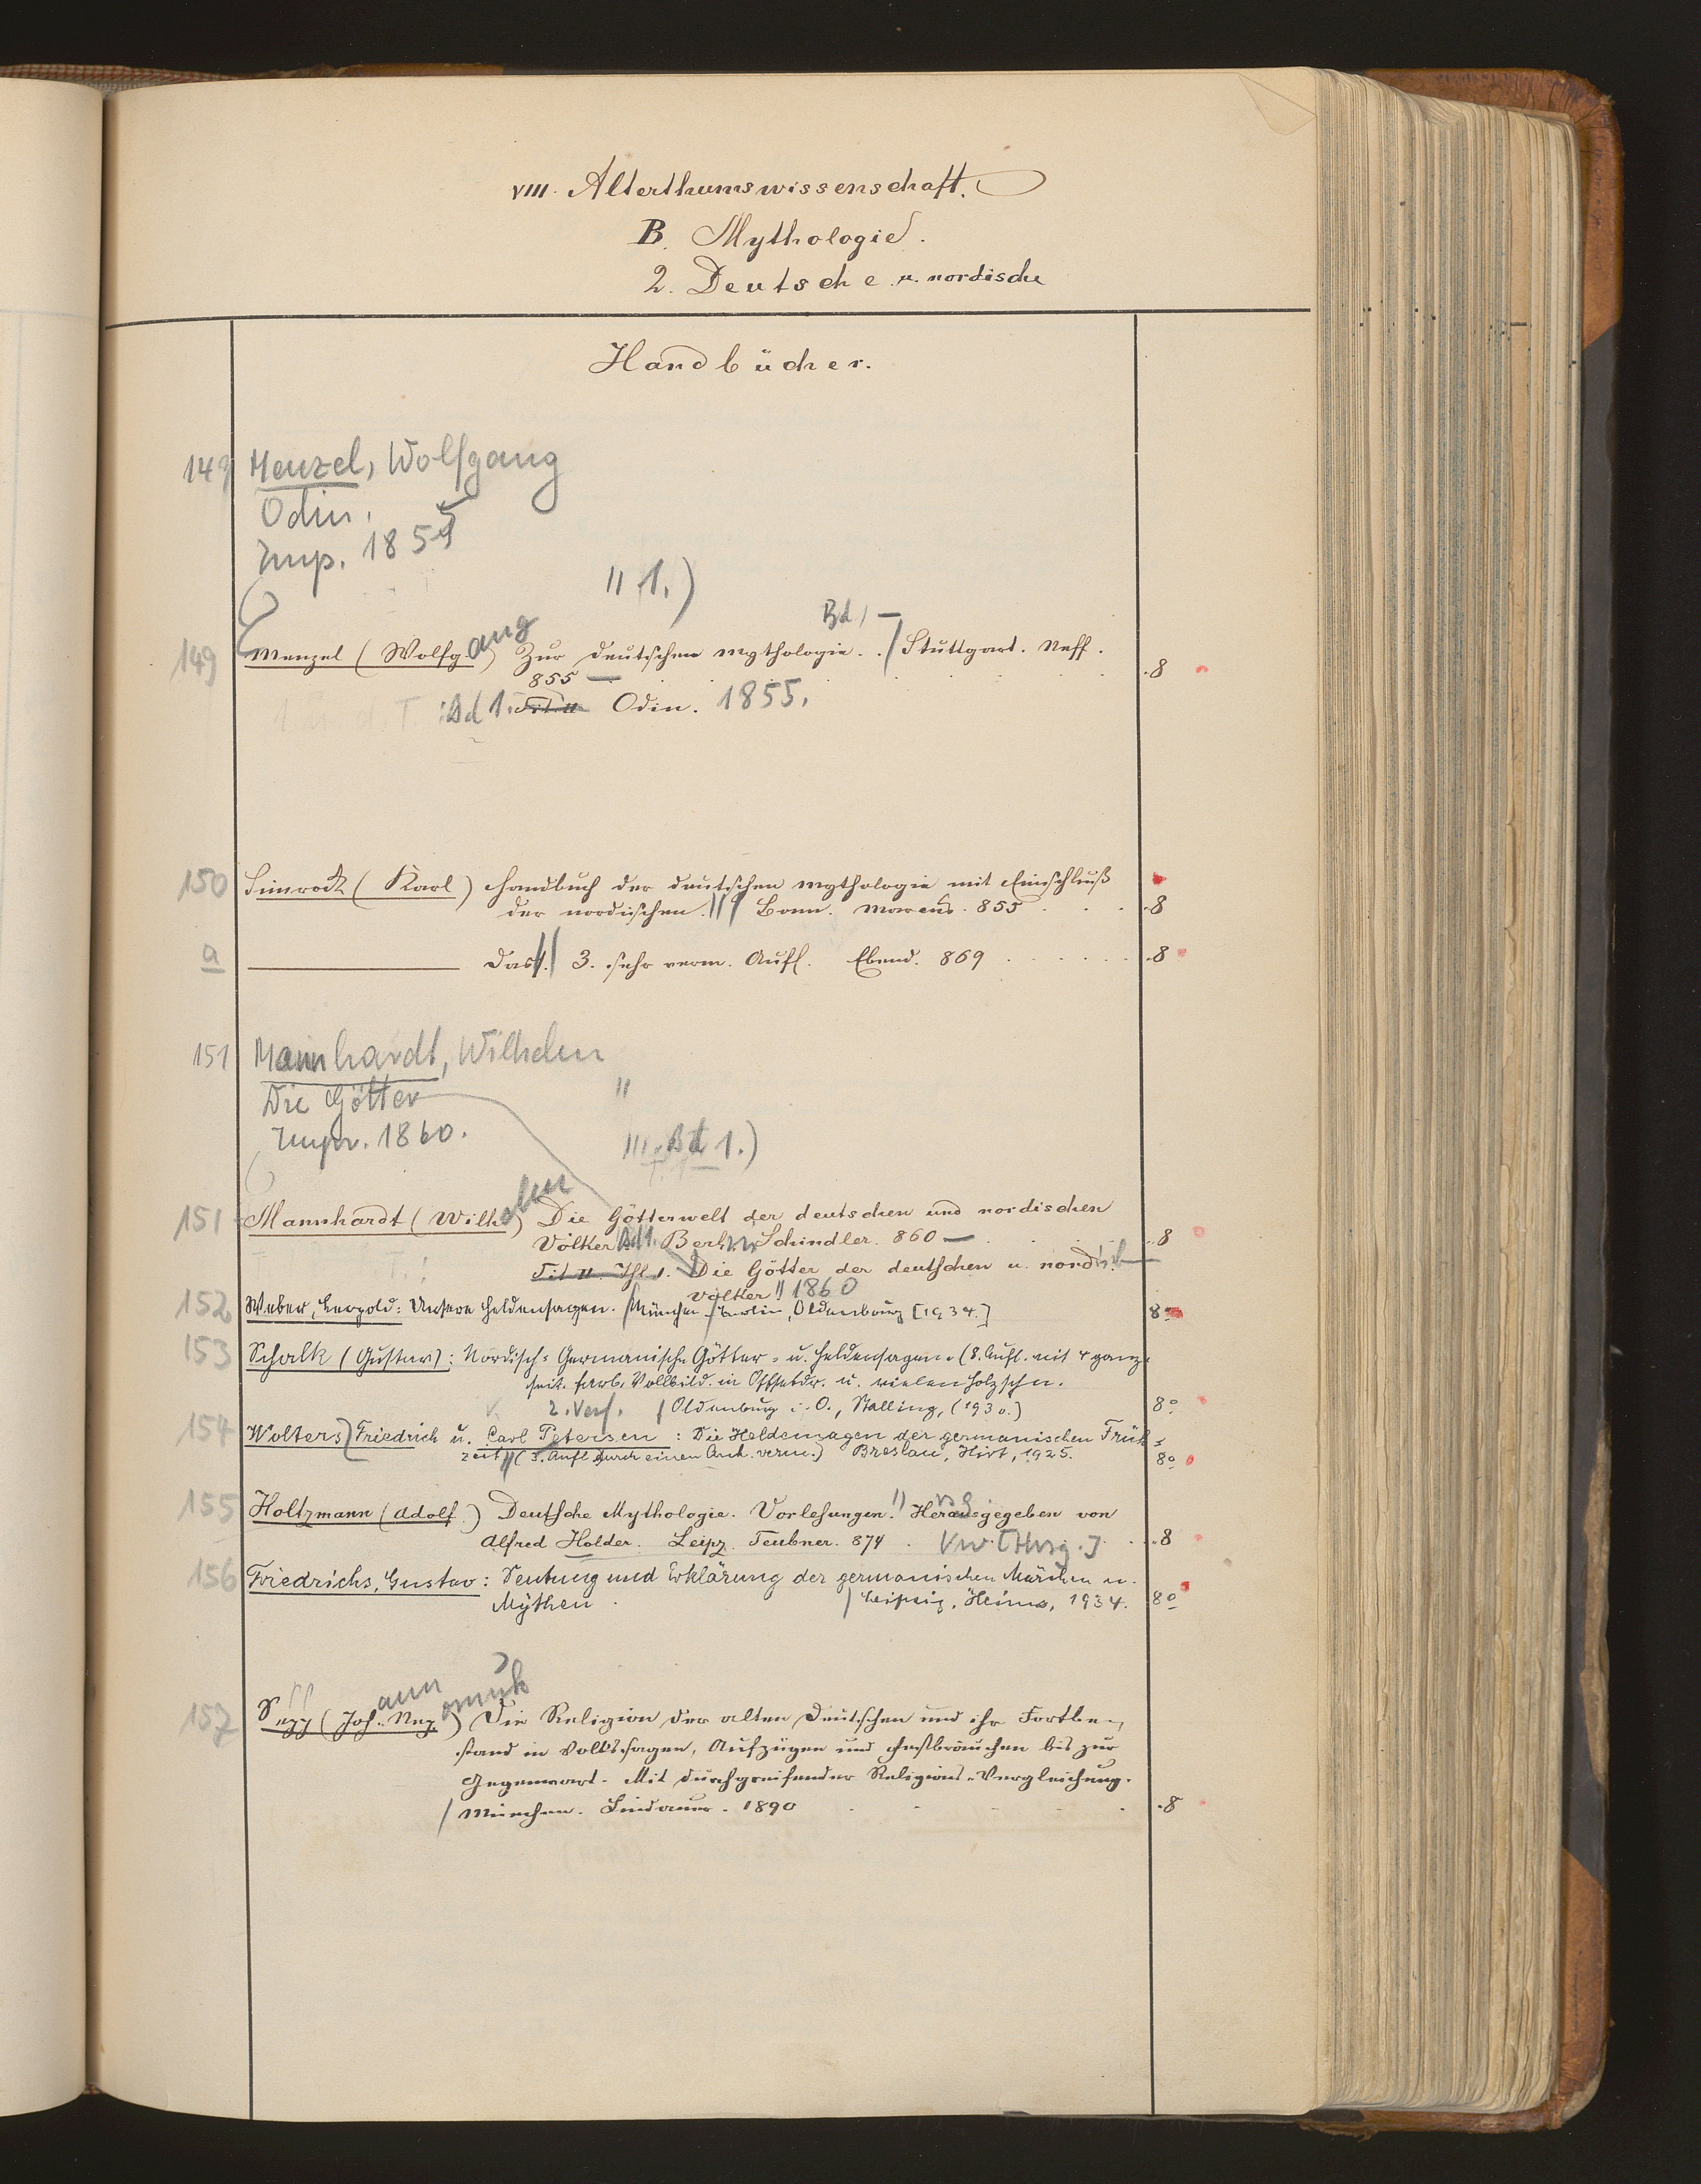 VIII. Alterthumswissenschaft.
B. Mythologie.
2. Deutsche u. nordische
Handbücher.
149 Menzel, Wolfgang
Odin.
Imp. 1855
" 1.)
Bd 1 —
149 Menzel (Wolfgang) Zur deutschen Mythologie. / Stuttgart. Neff. 8
855 —
Bd 1. Tit. II Odin. 1855.
150 Simrock (Karl) Handbuch der deutschen Mythologie mit Einschluß
der nordischen. // Bonn. Marcus. 855 8
a ——— Dass. // 3. sehr verm. Aufl. Ebend. 869 8
151 Mannhardt, Wilhelm
Die Götter "
Impr. 1860.
III. Bd 1.)
151 Mannhardt (Wilhelm) Die Götterwelt der deutschen und nordischen
Völker Bd 1. Berl. Schindler. 860 — 8
Tit. II. Thl. 1. Die Götter der deutschen u. nordisch
Völker // 1860
152 Weber, Leopold: Unsere Heldensagen. / München / Berlin, Oldenbourg [1934.] 8°
153 Schalk (Gustav): Nordisch-Germanische Götter- u. Heldensagen. (8. Aufl. mit 4 ganz-
seit. farb. Vollbild. in Offsetdr. u. vielen Holzschn.
2. Verf. / Oldenburg i. O., Stalling, (1930.) 8°
154 Wolters, Friedrich u. Carl Petersen: Die Heldensagen der germanischen Früh-
zeit // (3. Aufl. durch einen Anh. verm.) Breslau, Hirt, 1925. 8°
155 Holtzmann (Adolf) Deutsche Mythologie. Vorlesungen. // Herausgegeben von
Alfred Holder. Leipz. Teubner. 874. Vw. [Hrsg.] 8
156 Friedrichs, Gustav: Deutung und Erklärung der germanischen Märchen u.
Mythen. / Leipzig, Heims, 1934. 8°
157 Sepp (Johann Nepomuk) Die Religion der alten Deutschen und ihr Fortbe-
stand in Volkssagen, Aufzügen und Festbräuchen bis zur
Gegenwart. Mit durchgreifender Religions-Vergleichung.
/ München. Lindauer. 1890 8